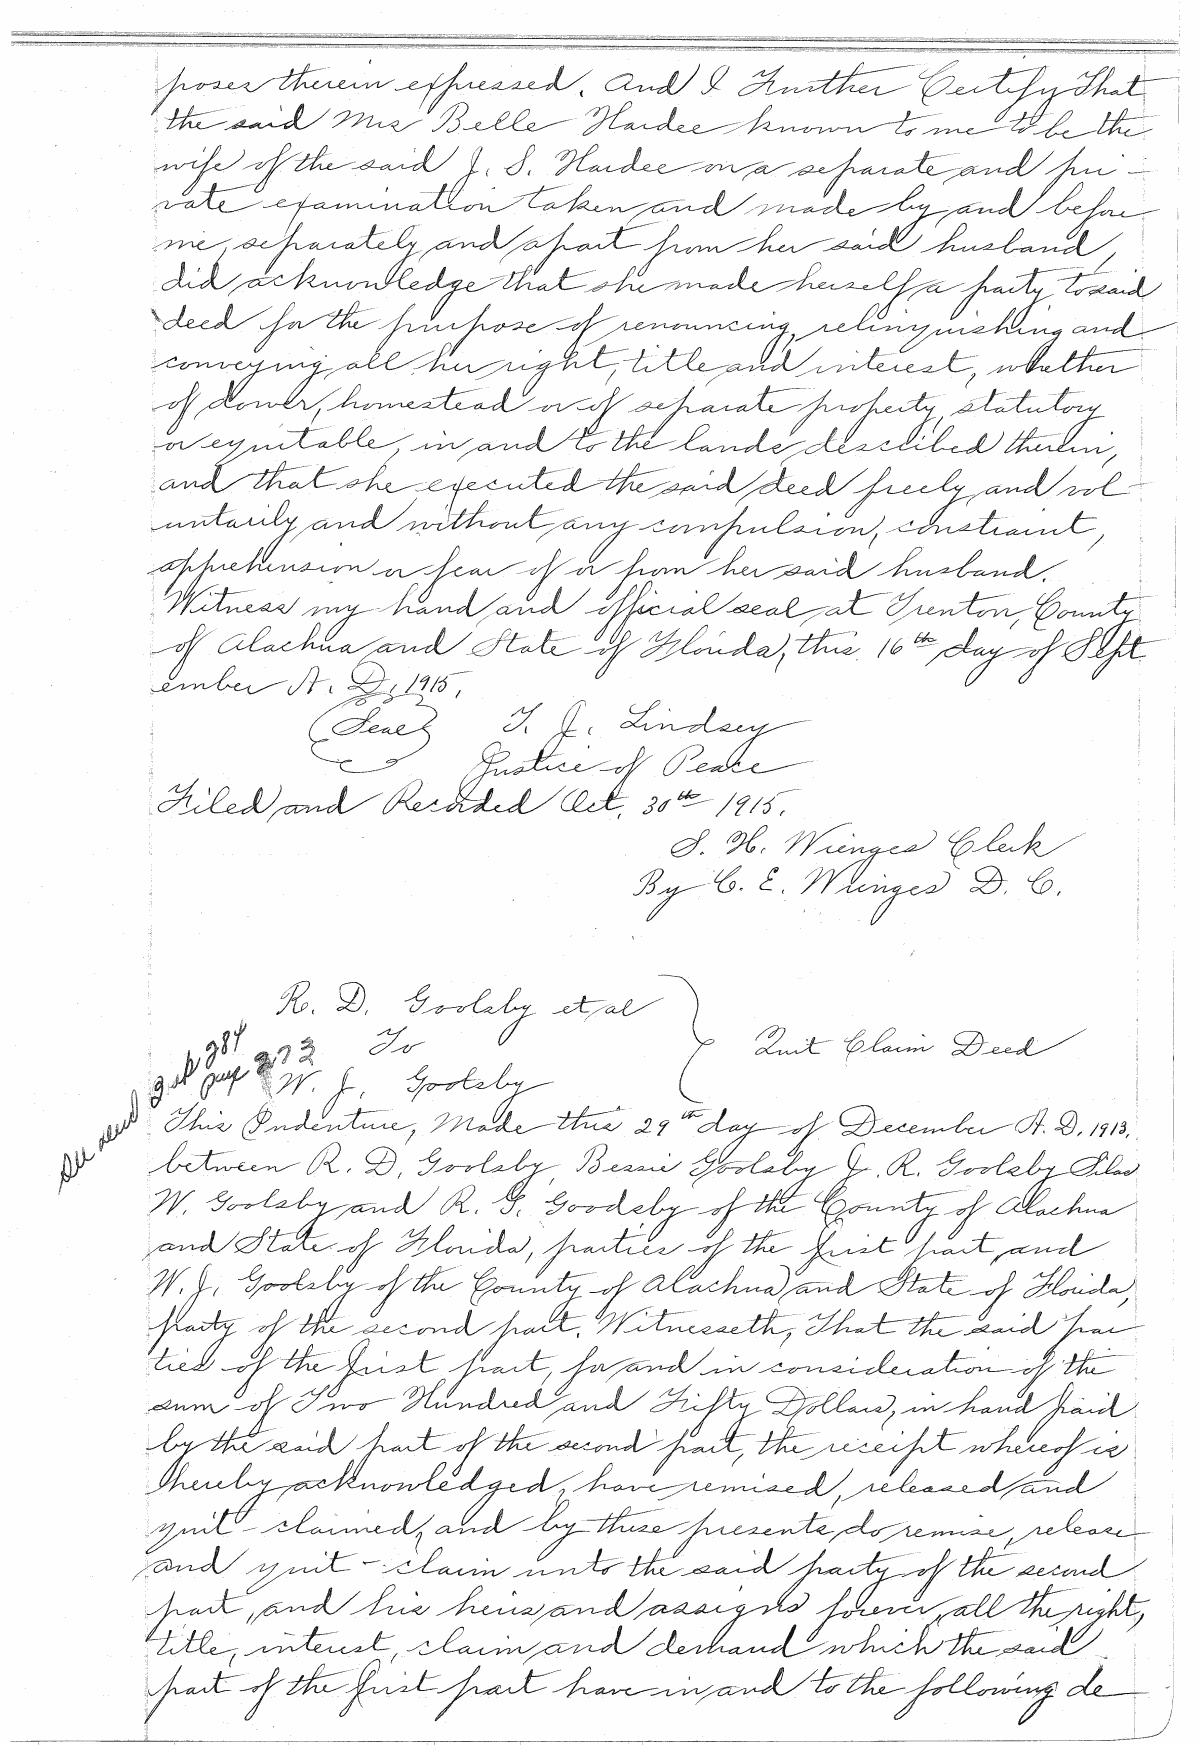 poses therein expressed. And I Further Certify That
the said Mrs Belle Hardee known to me to be the
wife of the said J. S. Hardee on a separate and pri-
vate examination taken and made by and before
me, separately and apart from her said husband,
did acknowledge that she made herself a party to said
deed for the purpose of renouncing, relinquishing and
conveying all her right, title and interest, whether
of dower, homestead or of separate property, statutory
or equitable, in and to the lands described therein,
and that she executed the said deed freely and vol-
untarily and without any compulsion, constraint,
apprehension or fear of or from her said husband.
Witness my hand and official seal at Trenton, County
of Alachua and State of Florida, this 16th day of Sept
ember A. D. 1915.
(Seal) T. J. Lindsey
Justice of Peace
Filed and Recorded Oct. 30th 1915.
S. H. Wienges Clerk
By C. E. Wienges D. C.
R. D. Goolsby et al
To
Quit Claim Deed
W. J. Goolsby
This Indenture, Made this 29th day of December A. D. 1913.
between R. D. Goolsby, Bessie Goolsby J. R. Goolsby Silas
W. Goolsby and R. G. Goodsby of the County of Alachua
and State of Florida, parties of the first part, and
W. J. Goolsby of the County of Alachua and State of Florida,
party of the second part. Witnesseth, That the said par
ties of the first part, for and in consideration of the
sum of Two Hundred and Fifty Dollars, in hand paid
by the said part of the second part, the receipt whereof is
hereby acknowledged, have remised, released and
quit-claimed, and by these presents do remise, release
and quit-claim unto the said party of the second
part, and his heirs and assigns forever, all the right,
title, interest, claim and demand which the said
part of the first part have in and to the following de